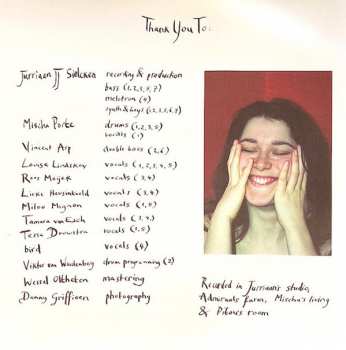 Thank You To:
Jurriaan JJ Sielcken recording & production
bass (1,2,3,5,7)
melotron (4)
synth & keys (1,2,3,5,6,7)
Mischa Porte drums (1,2,3,5)
vocals (1)
Vincent Arp double bass (2,6)
Louisa vocals (1,2,3,4,5)
Roos Meijer vocals (3,4)
Lieke Heusinkveld vocals (3,4)
Milou Mignon vocals (1,5)
Tamara van Esch vocals (3,4)
Tessa Douwstra vocals (1,5)
bird vocals (4)
Viktor van Woudenberg drum programming (2)
Wessel Oltheten mastering
Danny Griffioen photography
Recorded in Jurriaan's studio,
Admiraals farm, Mischa's living
& room